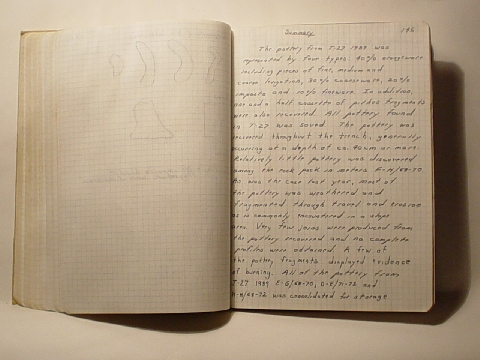 Summary 146
The pottery from T-27 1989 was
represented by four types: 40% orangeware
including pieces of fine, medium and
coarse levigation, 30% coarseware, 20%
impasto and 10% fineware. In addition,
one and a half cassette of pithos fragments
were also recovered. All pottery found
in T-27 was saved. The pottery was
recovered throughout the trench, generally
occurring at a depth of ca. 40cm or more.
Relatively little pottery was discovered
among the rock pack in meters
As was the case last year, most of
the pottery was weathered and
fragmented through travel and erosion
as is commonly encountered in a slope
area. Very few joins were produced from
the pottery recovered and no complete
profiles were obtained. A few of
the pottery fragments displayed evidence
of burning. All of the pottery from
T-27 1989 and
was consolidated for storage